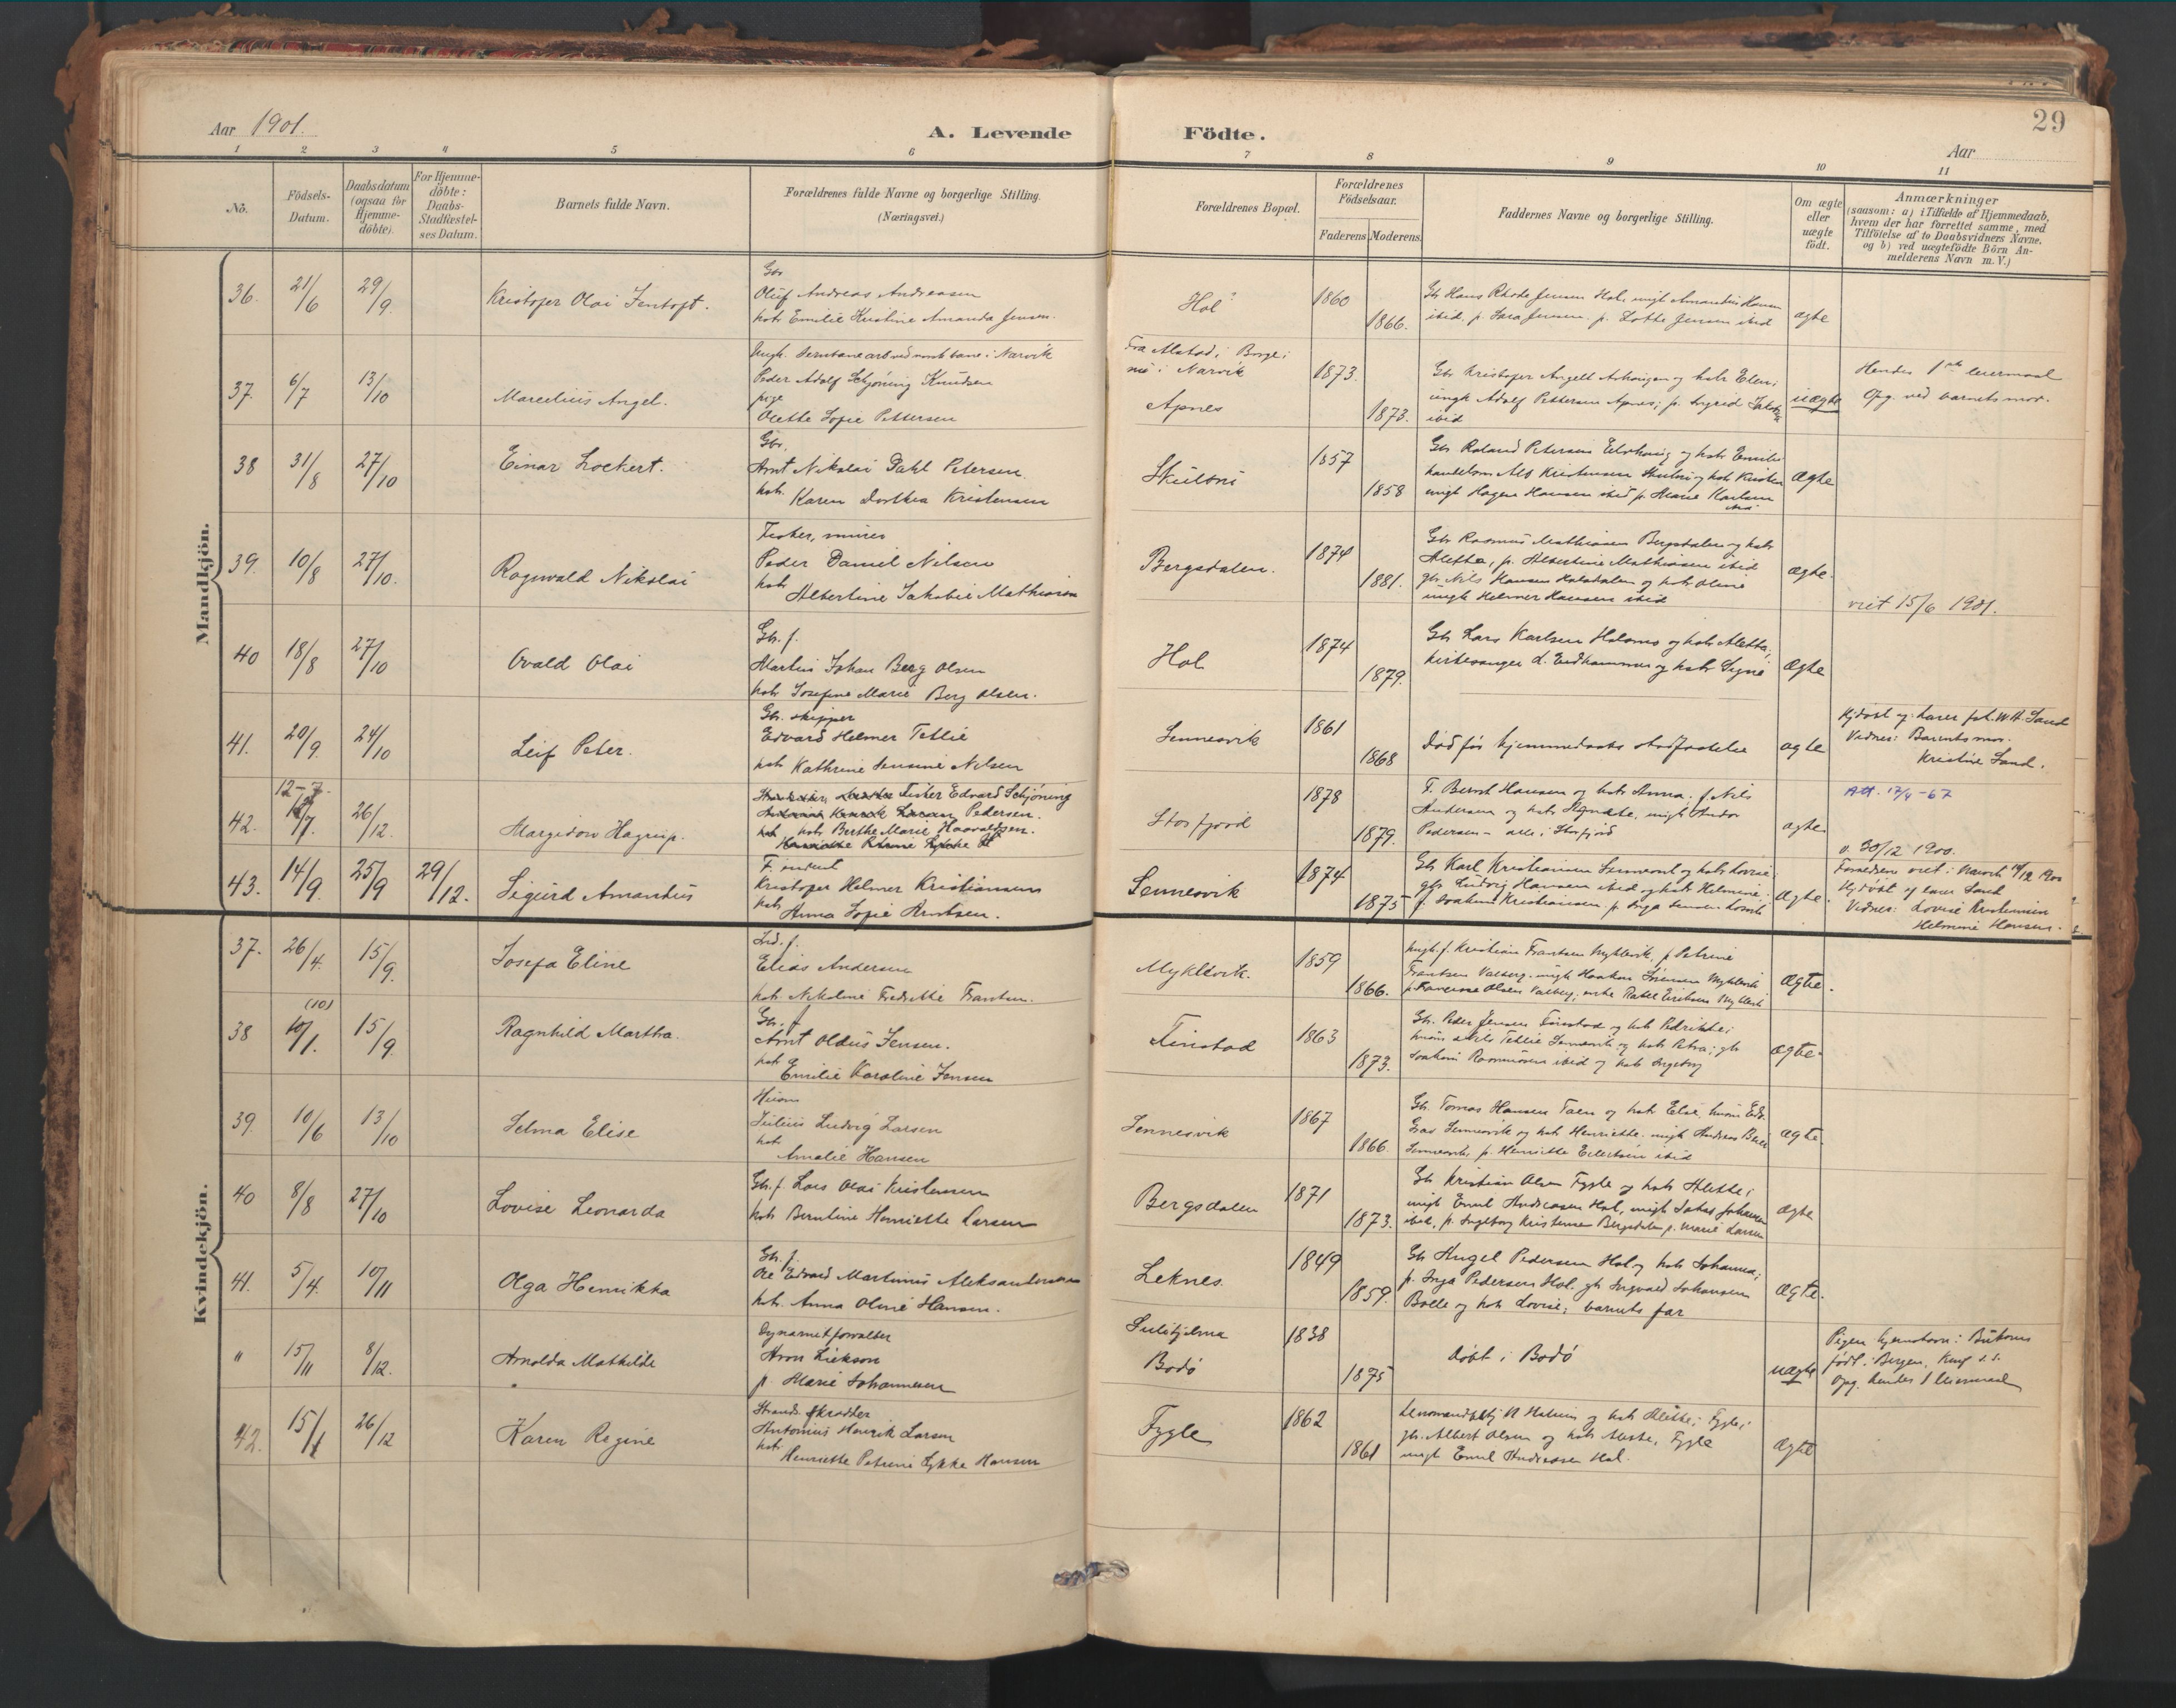 Aar 1901.
A. Levende
Födte.
29
Aar
1 2 3 4 5 6 7 8 9 10 11
No.
Födsels-
Datum.
Daabsdatum
(ogsaa for
Hjemme-
döbte).
For Hjemme-
döbte:
Daabs-
Stadfæstel-
ses Datum.
Barnets fulde Navn.
Forældrenes fulde Navne og borgerlige Stilling.
(Næringsvei.)
Forældrenes Bopæl.
Forældrenes
Födselsaar.
Faderens Moderens.
Faddernes Navne og borgerlige Stilling.
Om ægte
eller
uægte
födt.
Anmærkninger
(saasom: a) i Tilfælde af Hjemmedaab,
hvem der har forrettet samme, med
Tilföielse af to Daabsvidners Navne.
og b) ved uægtefödte Börn An-
melderens Navn m. V.)
Mandkjön.
36. 21/6 29/9. Kristofer Olai Jentoft.
Gbr
Oluf Andreas Andreasen
hstr Emilie Kristine Amanda Jensen.
Hol
1860
1866.
Gb Hans Rhode Jensen Hol, ungk Amandus Hansen
ibid. p. Sara Jensen. p. Lotte Jensen ibid
ægte
37. 6/7 13/10 Marcelius Angel.
Ungk. Jernbanearb ved norsk bane i Narvik
Peder Adolf Schjöning Knudsen
pige
Olette Sofie Pettersen
Fra Alstad i Borge;
nu i Narvik
Apnes
1873.
1873.
Gbr Kristofer Angell og hstr Elen;
ungk Adolf Pettersen Apnes; p. Ingrid
ibid
uægte
Hendes 1ste leiermaal
Opg. ved barnets mor.
38 31/8 27/10 Einar Lockert.
Gbr.
Arnt Nikolai Dahl Petersen
hstr.
Karen Dorthea Kristensen
Skulbru
1857
1858
Gb Roland Petersen og hstr Emilie
handelsm Kristensen og hstr
ungk Hagen Hansen ibid p. Marie Karlsen
ibid
Ægte
39. 10/8 27/10. Ragnvald Nikolai
Fisker, murer
Peder Daniel Nilsen
hstr
Albertine Jakobie Mathisen
Bergsdalen.
1874
1881.
Gb Rasmus Mathisen Bergsdalen og hstr
Alettha, p. Albertine Mathisen ibid
gb. Nils Hansen Holsdalen og hstr Oline
ungk Helmer Hansen ibid
ægte.
viet 15/6 1901.
40 18/8 27/10 Ovald Olai
Gb. f.
Martin Johan Berg Olsen
hstr Josefine Marie Berg Olsen.
Hol
1874
1879.
Gb Lars Karlsen Holsmo og hstr Aletta;
kirkesanger d. og hstr Signe
Ægte
41. 20/9. 24/10 Leif Peter.
Gb. skipper
Edvard Helmer Tetlie
hstr Kathrine Jensine Nilsen
Sennesvik
1861
1868
död för hjemmedaabs stadfæstelse
ægte
Hjdöbt af lærer W. H. Sand
Vidner: Barnets mor.
Kristine Sand.
42. 12-7. 26/12. Margidon Hagrup.
Fisker Edvard Schjöning
Pedersen.
hstr Berthe Marie Haavaldsen.
Storfjord
1878
1879.
F. Bernt Hansen og hstr Anna. f. Nils
Andersen og hstr ungk Andor
Pedersen - alle i Storfjord
ægte
Att. 17/4-67
v. 30/12 1900.
43. 14/9. 25/9 29/12. Sigurd Amandus
F. inderst
Kristofer Helmer Kristiansen
hstr
Anna Sofie Arntsen.
Sennesvik
1874
1875
Gb Karl Kristiansen Sennesvik og hstr Lovise;
gb. Ludvig Hansen ibid og hstr Helmine;
f. Joakim Kristiansen p. Inga Jensen
Ægte.
Forældrene viet i Narvik 14/12 1900
Hjdöbt af lærer Sand
Vidner: Lovise Kristiansen
Helmine Hansen.
Kvindekjön.
37. 26/4. 15/9. Josefa Eline
Ind. f.
Elias Andersen
hstr. Nikoline Fredrikke Frantsen.
Myklevik.
1859
1866.
ungk. f. Kristian Frantsen Myklevik, p Petrine
Frantsen Valberg. ungk Haakon Myklevik
p. Olsen Valberg; enke Eriksen Myklevik
Ægte.
38 (10) 10/1. 15/9. Ragnhild Martha.
Gb. f.
Arnt Oldus Jensen.
hstr
Emilie Karoline Jensen
Finstad
1863
1873.
Gb. Peder Jensen Finstad og hstr Fedrikke;
husm Nils Tetlie Sennesvik og hstr Petra; gb
Joakim Rasmussen ibid og hstr Ingeborg
ægte.
39 10/6 13/10 Selma Elise
Husm
Julius Ludvig Larsen
hstr
Amalie Hansen
Sennesvik
1867
1866.
Gb. Tomas Hansen Taen og hstr Else, husm
Sennesvik og hstr Henriette. ungk Andreas
Sennesvik, p. Henriette ibid
ægte.
40 8/8 27/10 Lovise Leonarda
Gb. f. Lars Olai Kristensen
hstr Berntine Henriette Larsen
Bergsdalen
1871
1873.
Gb Kristian Olsen Fygle og hstr Alette;
ungk Emil Andreasen Hol, ungk Johansen
ibid, p. Ingeborg Kristensen Bergsdalen p. Marie Larsen
ægte
41. 5/4. 10/11 Olga Henrikka
Gb. f.
Ole Edvard Martinus Aleksandersen
hstr. Anna Oline Hansen.
Leknes.
1849
1859.
Gb Angel Pedersen Hol og hstr Johanna;
p. Inga Pedersen Hol. gb Ingvald Johansen
Bolle og hstr Lovise; barnets far
Ægte.
" 15/11 8/12. Arnolda Mathilde
Dynamitforvalter
Aron Eirkson
p. Marie Johannesen
Sulitjelma
Bodö
1838
1875
döbt i Bodö
uægte
Pigen hjemhörr: Buksnes
födt i Bergen.
Opg. hendes 1 leiermaal
42. 15/1 26/12 Karen Regine
Strands. skrædder
Antonius Henrik Larsen
hstr.
Henriette Petrine Lykke Hansen
Fygle
1862
1861
Lensmandsfuldm og hstr Alethe; Fygle;
gb. Albert Olsen og hstr Fygle
ungk Emil Andreassen Hol.
Ægte